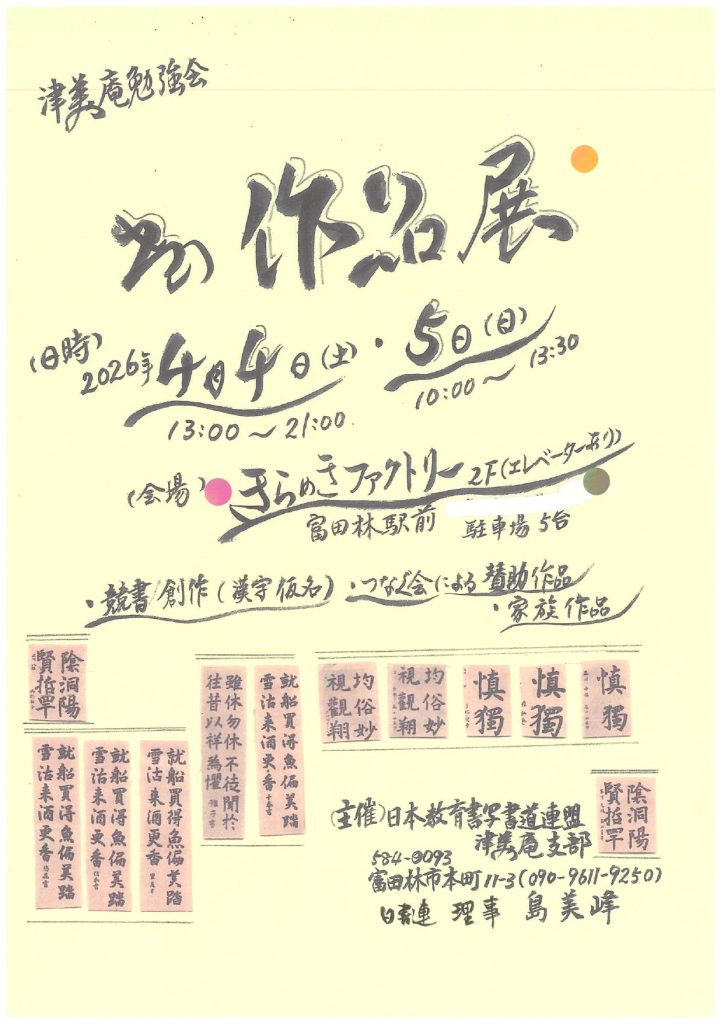 津美庵勉強会
作品展
(日時)
2026年4月4日(土)・5日(日)
13:00~21:00
10:00~13:30
(会場)
きらめきファクトリー 2F(エレベーターあり)
富田林駅前
駐車場 5台
・競書 創作(漢字 仮名) ・つなぐ会による賛助作品
・家族作品
陰洞陽
賢哲罕
就船買得魚偏美踏
雪沽来酒更香
就船買得魚偏美踏
雪沽来酒更香
就船買得魚偏美踏
雪沽来酒更香
就船買得魚偏美踏
雪沽来酒更香
雖休勿休不徒聞於
往昔以祥為懼
均俗妙
視觀翔
均俗妙
視觀翔
慎獨
慎獨
慎獨
陰洞陽
賢哲罕
(主催)日本教育書写書道連盟
津美庵支部
584-0093
富田林市本町11-3(090-9611-9250)
日書連 理事 島美峰